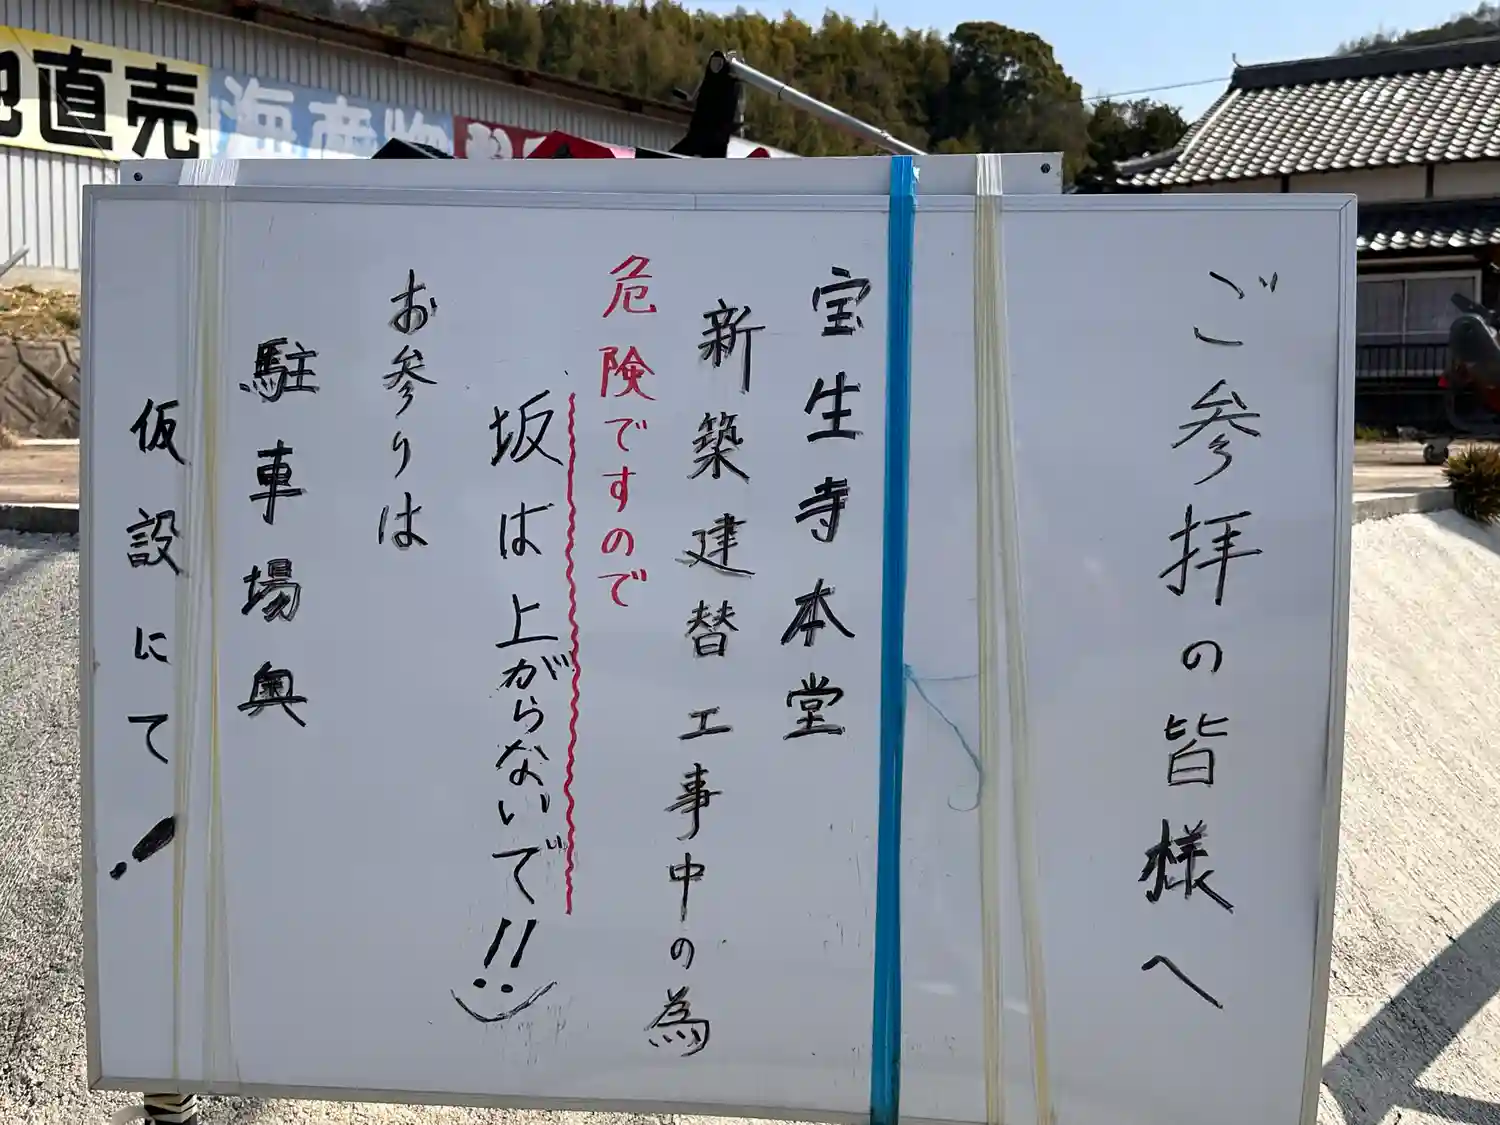 直売
海産物
ご参拝の皆様へ
宝生寺本堂
新築建替工事中の為
危険ですので
坂は上がらないで!!
お参りは
駐車場奥
仮設にて!